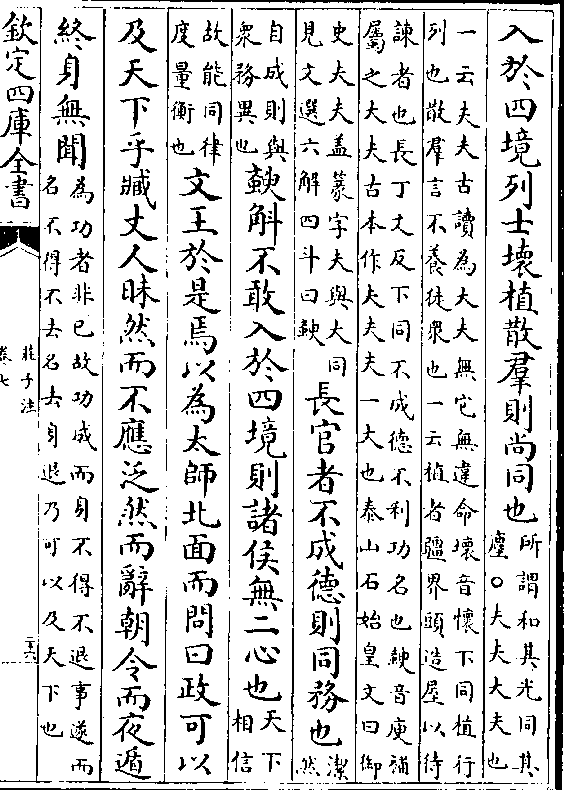 入於四境列士壞植散羣則尚同也所謂和其光同其塵○夫夫大夫也
一云夫夫古讀為大夫無它無違命壞音懷下同植行
列也散羣言不養徒衆也一云植者疆界頭造屋以待
諫者也長丁丈反下同不成德不利功名也䵂音庾補
屬之大夫古本作夫夫夫一大也泰山石始皇文曰御
史夫夫盖篆字夫與大同
見文選六解四斗曰䵂
長官者不成德則同務也潔然
自成則與
衆務異也
䵂斛不敢入於四境則諸侯無二心也天下相信
故能同律
度量衡也
文王於是焉以為太師北面而問曰政可以
及天下乎臧丈人昧然而不應泛然而辭朝令而夜遁
終身無聞為功者非已故功成而身不得不退事遂而
名不得不去名去身退乃可以及天下也
欽定四庫全書
莊子注
卷七
二十六